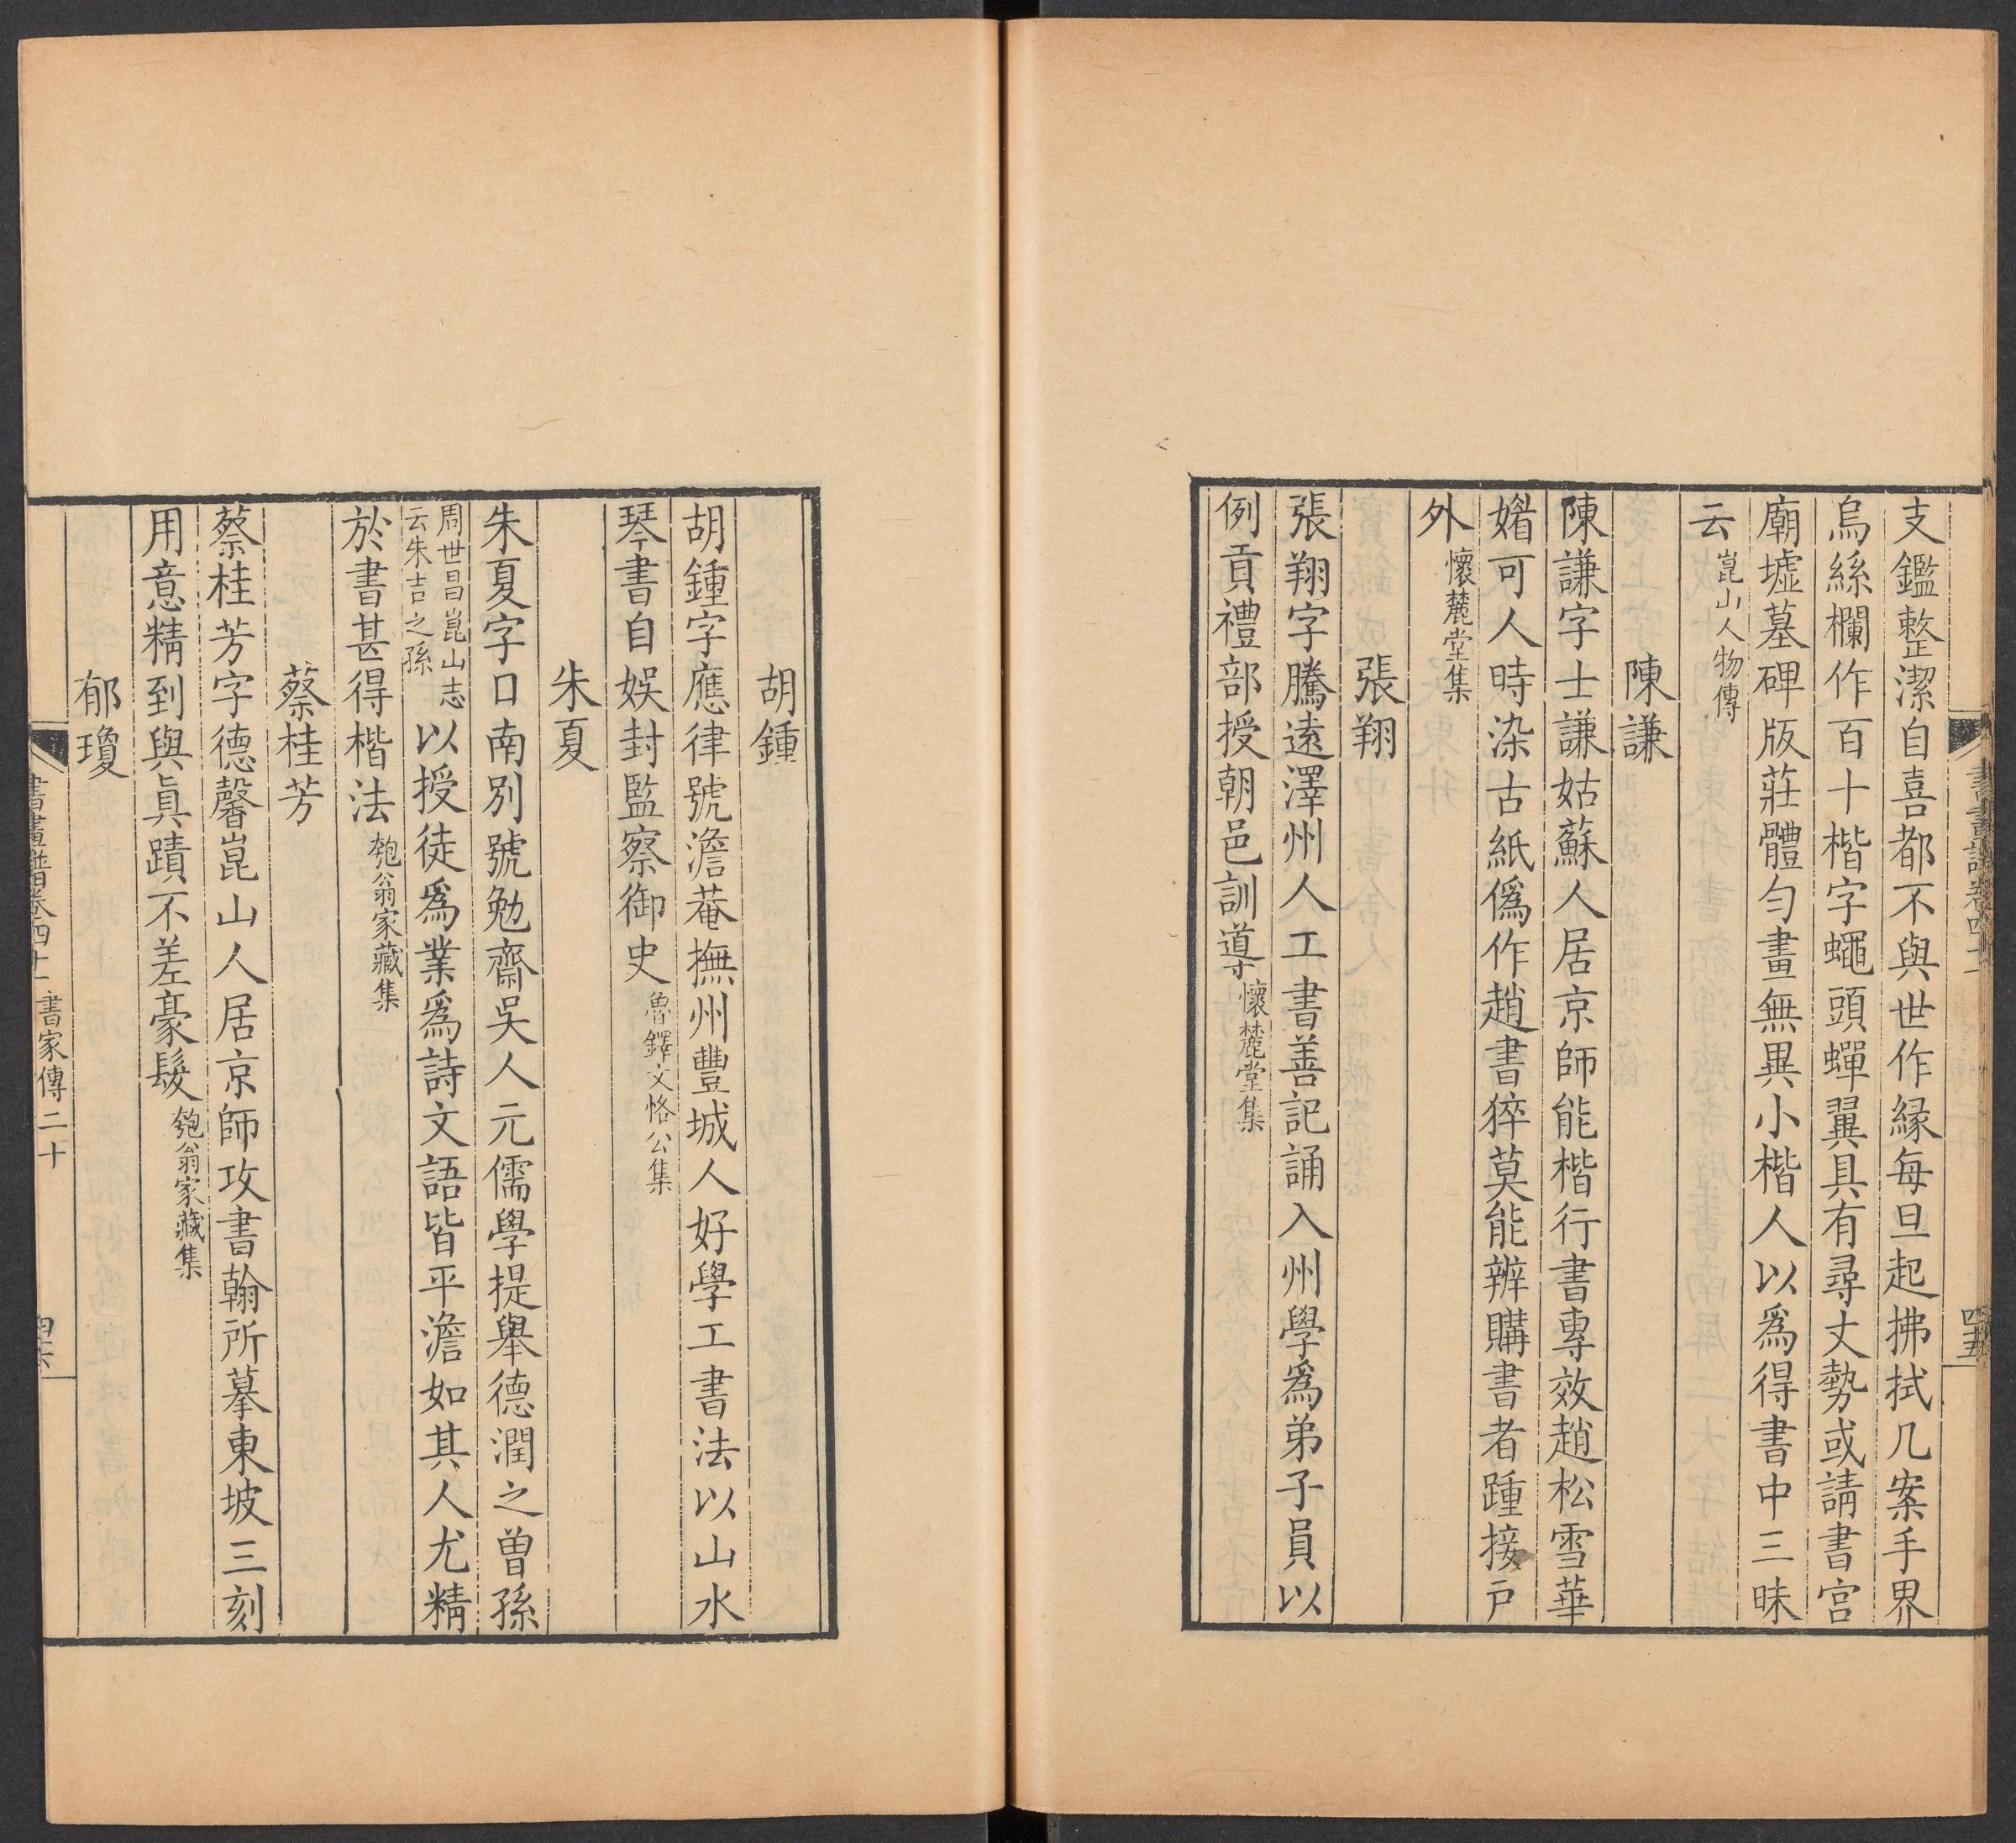 支鑑整潔自喜都不與世作緣每旦起拂拭几案手界
烏絲欄作百十楷字蠅頭蟬翼具有尋丈勢或請書宫
廟墟墓碑版莊體勻畫無異小楷人以爲得書中三昧
云崑山人物傳
陳謙
陳謙字士謙姑蘇人居京師能楷行書專效趙松雪華
媘可人時染古紙僞作趙書猝莫能辨購書者踵接戸
外懷麓堂集
張翔
張翔字騰遠澤州人工書善記誦入州學爲弟子員以
例貢禮部授朝邑訓導懷麓堂集
胡鍾
胡鍾字應律號澹菴撫州豐城人好學工書法以山水
琴書自娱封監察御史魯鐸文恪公集
朱夏
朱夏字口南别號勉齋吳人元儒學提舉德潤之曽孫
周世昌崑山志
云朱吉之孫
以授徒爲業爲詩文語皆平澹如其人尤精
於書甚得楷法匏翁家藏集
蔡桂芳
蔡桂芳字德馨崑山人居京師攻書翰所摹東坡三刻
用意精到與眞蹟不差豪髮匏翁家藏集
郁瓊
書畫譜卷四十一 書家傳二十